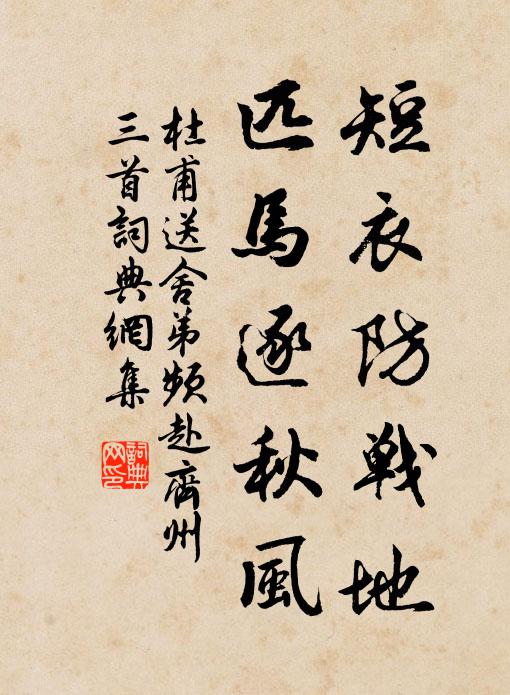 短衣防戰地
匹馬逐秋風
杜甫送舍弟頻赴齊州
三首詞典網集
詞典
网印